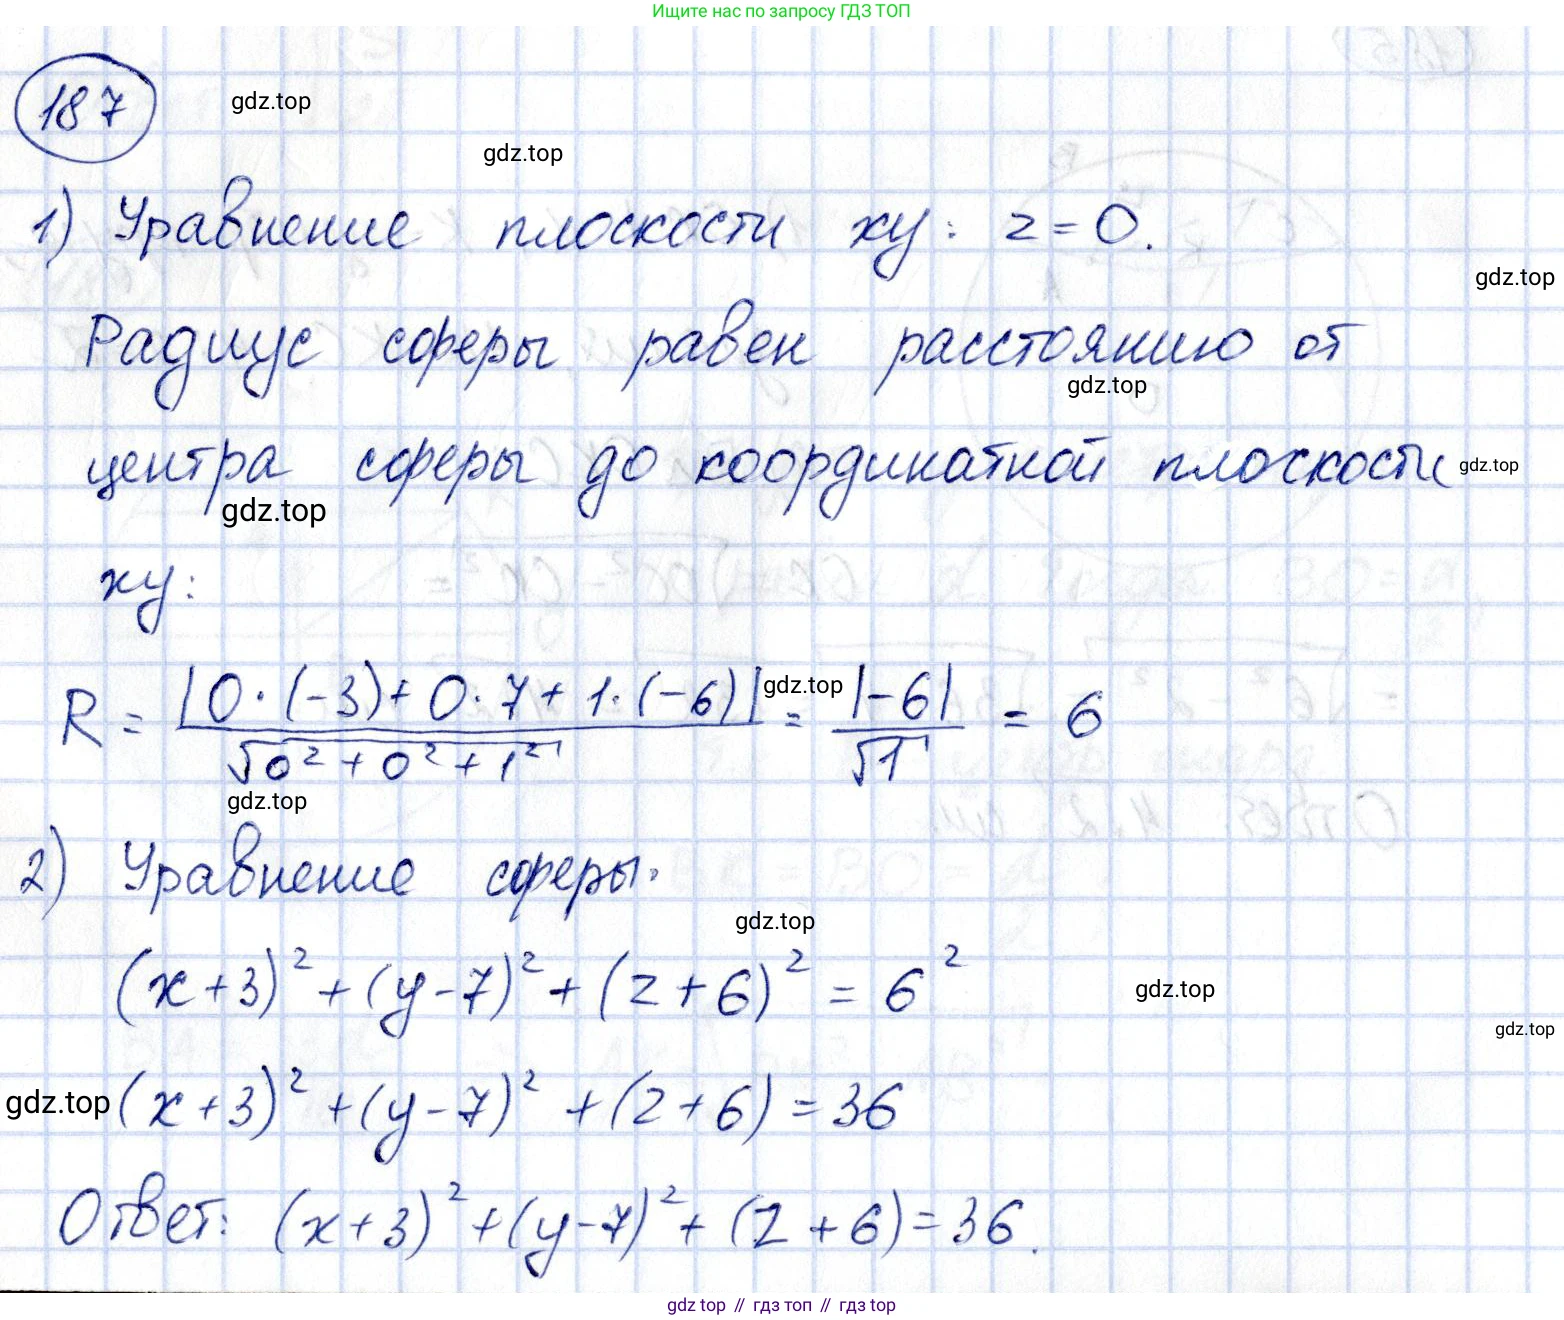 Ищите нас по запросу ГДЗ ТОП
187
gdz.top
gdz.top
1) Уравнение плоскости xy: z = 0.
gdz.top
Радиус сферы равен расстоянию от
gdz.top
центра сферы до координатной плоскости
gdz.top
gdz.top
xy:
R = |0·(-3) + 0·7 + 1·(-6)| / √(0² + 0² + 1²) = |-6| / √1 = 6
gdz.top
gdz.top
2) Уравнение сферы.
gdz.top
(x+3)² + (y-7)² + (z+6)² = 6²
gdz.top
gdz.top
gdz.top
(x+3)² + (y-7)² + (z+6) = 36
Ответ: (x+3)² + (y-7)² + (z+6) = 36.
gdz top // гдз топ // гдз top